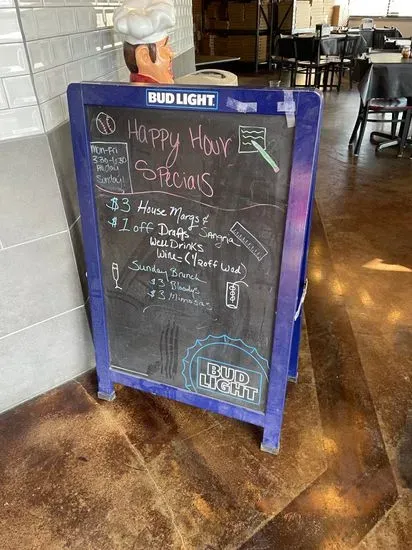 BUD LIGHT
Happy Hour
Specials
Mon-Fri
3:30-6:30
All day
Sunday!
$3 House Margs &
$1 off Drafts Sangria
Well Drinks
Wine - (1/2 off Wed)
Sunday Brunch
$3 Bloodys
$3 Mimosas
BUD
LIGHT